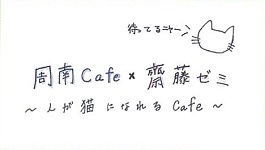 待ってるニャー
周南Cafe × 齋藤ゼミ
～人が猫になれるCafe～